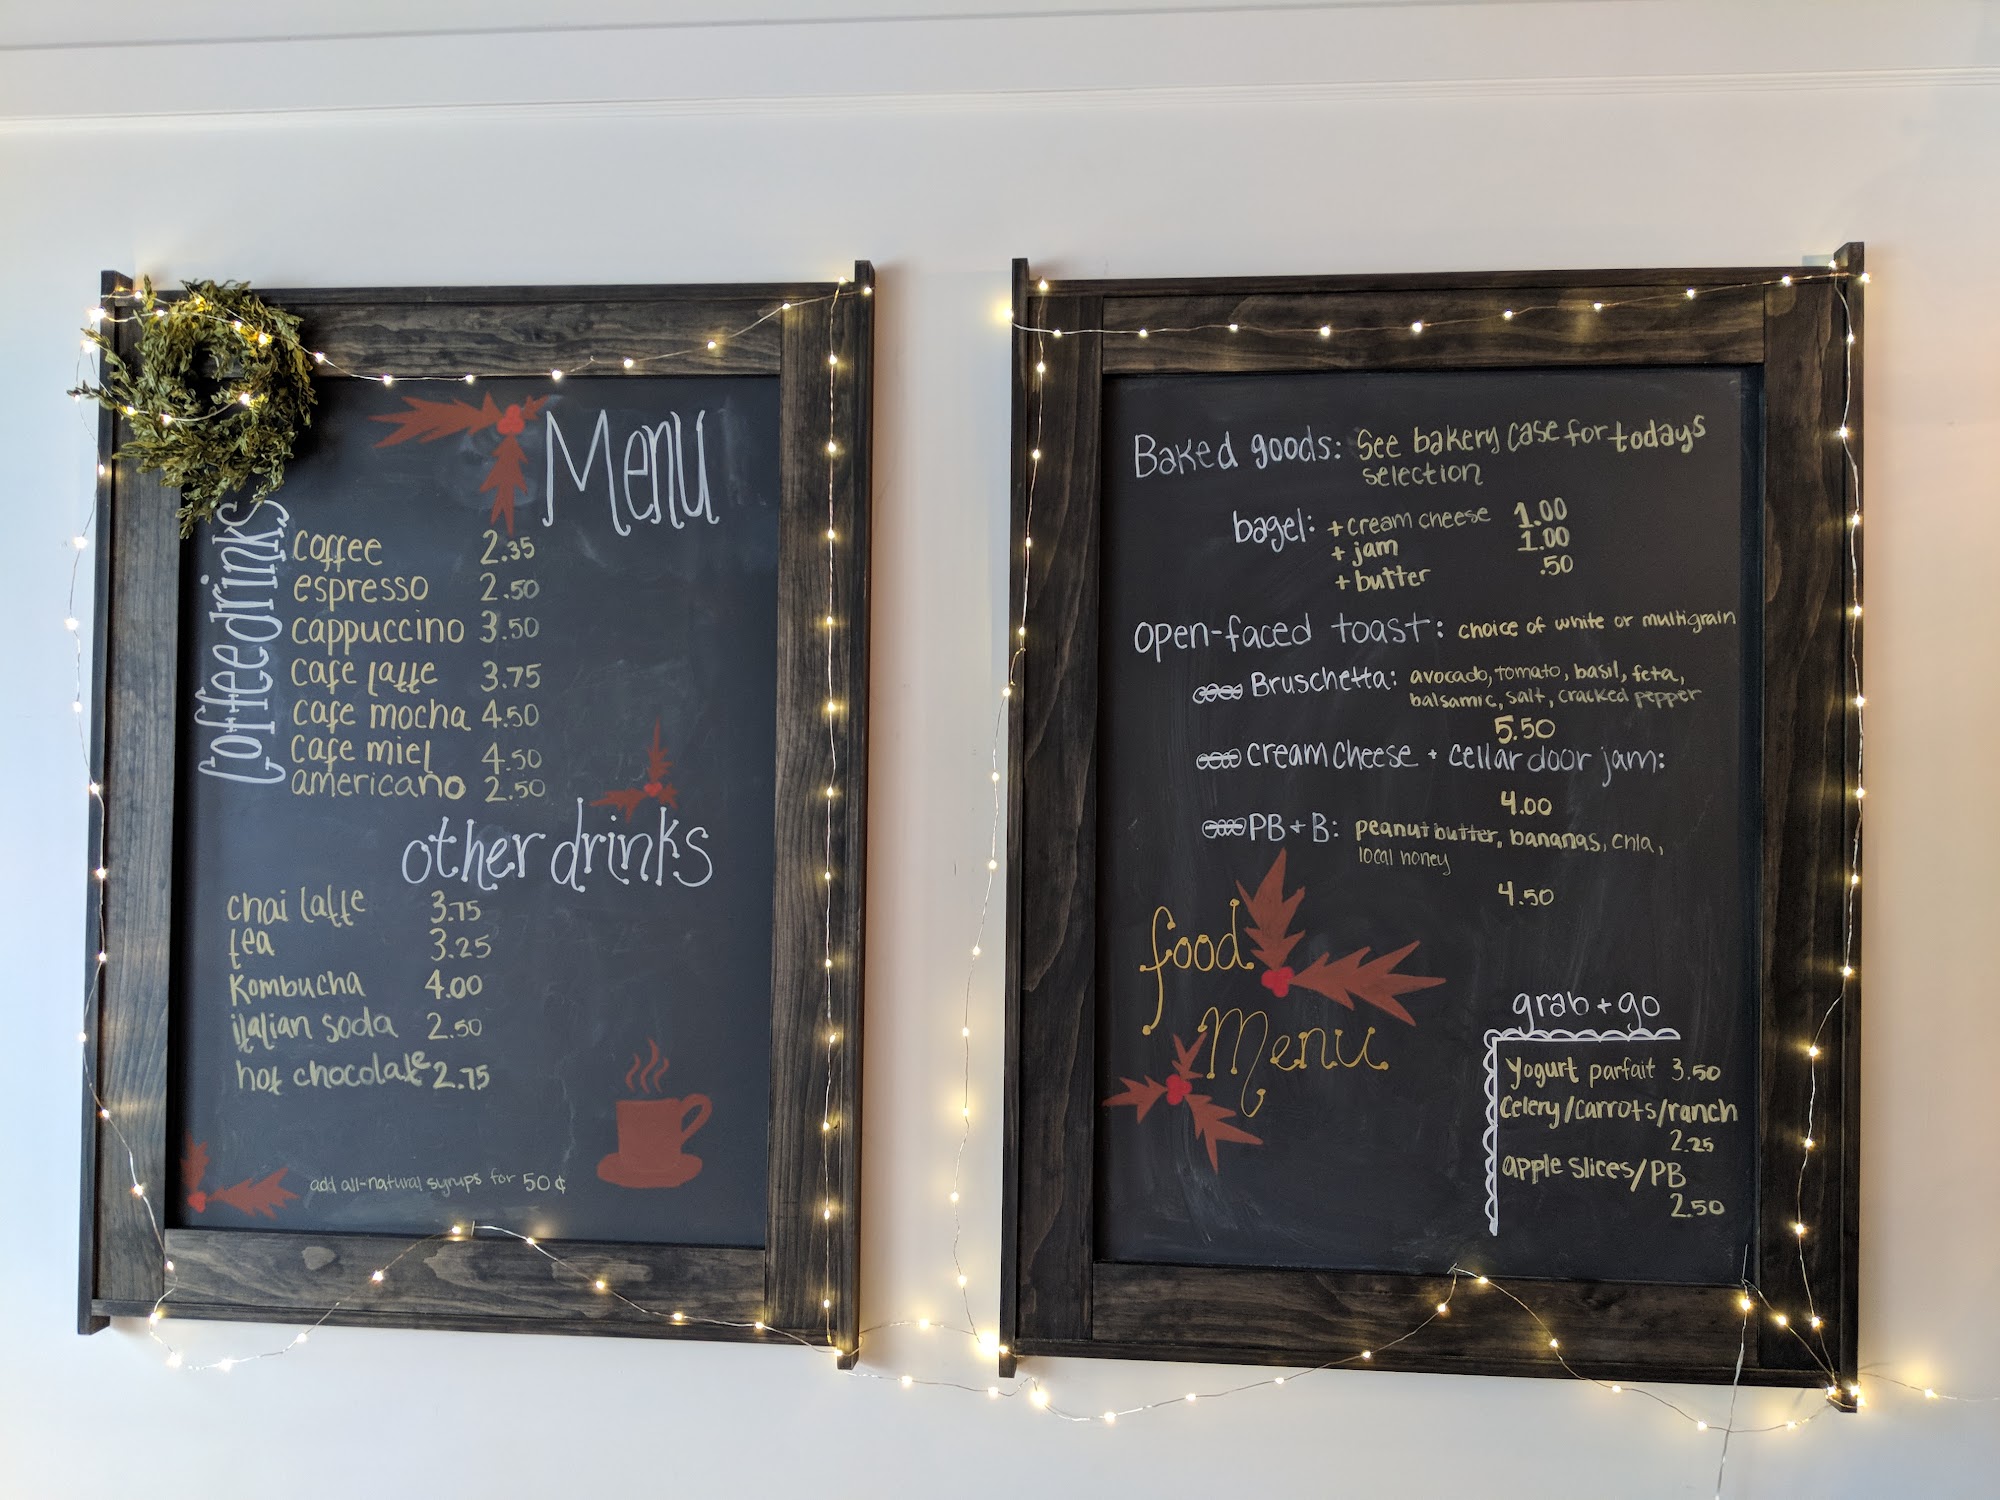 Menu
Coffee drinks
coffee 2.35
espresso 2.50
cappuccino 3.50
cafe latte 3.75
cafe mocha 4.50
cafe miel 4.50
americano 2.50
other drinks
chai latte 3.75
tea 3.25
Kombucha 4.00
italian soda 2.50
hot chocolate 2.75
add all-natural syrups for 50¢
Baked goods: See bakery case for todays
selection
bagel: + cream cheese 1.00
+ jam 1.00
+ butter .50
open-faced toast: choice of white or multigrain
Bruschetta: avocado, tomato, basil, feta,
balsamic, salt, cracked pepper
5.50
cream cheese + cellar door jam:
4.00
PB + B: peanut butter, bananas, chia,
local honey
4.50
food
Menu
grab + go
Yogurt parfait 3.50
Celery/carrots/ranch
2.25
apple slices/PB
2.50